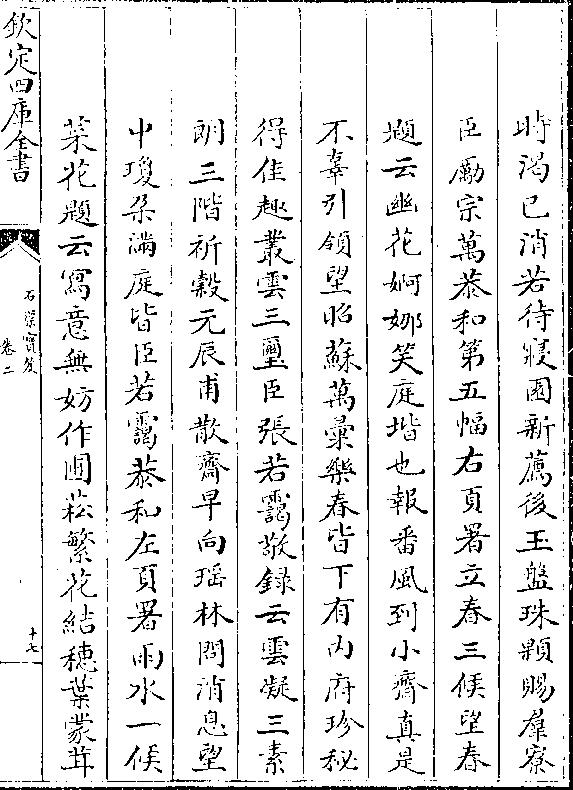 時渴已消若待寝園新薦後玉盤珠顆賜羣寮
臣勵宗萬恭和第五幅右頁署立春三候望春
題云幽花婀娜笑庭堦也報番風到小齋真是
不辜引領望昭蘇萬彚樂春皆下有内府珍秘
得佳趣叢雲三璽臣張若靄敬錄云雲凝三素
朗三階祈穀元辰甫散齋早向瑶林問消息望
中瓊朵滿庭皆臣若靄恭和左頁署雨水一候
菜花題云寫意無妨作圃菘繁花結穗葉蒙茸
欽定四庫全書
石渠寶笈
卷二
十七